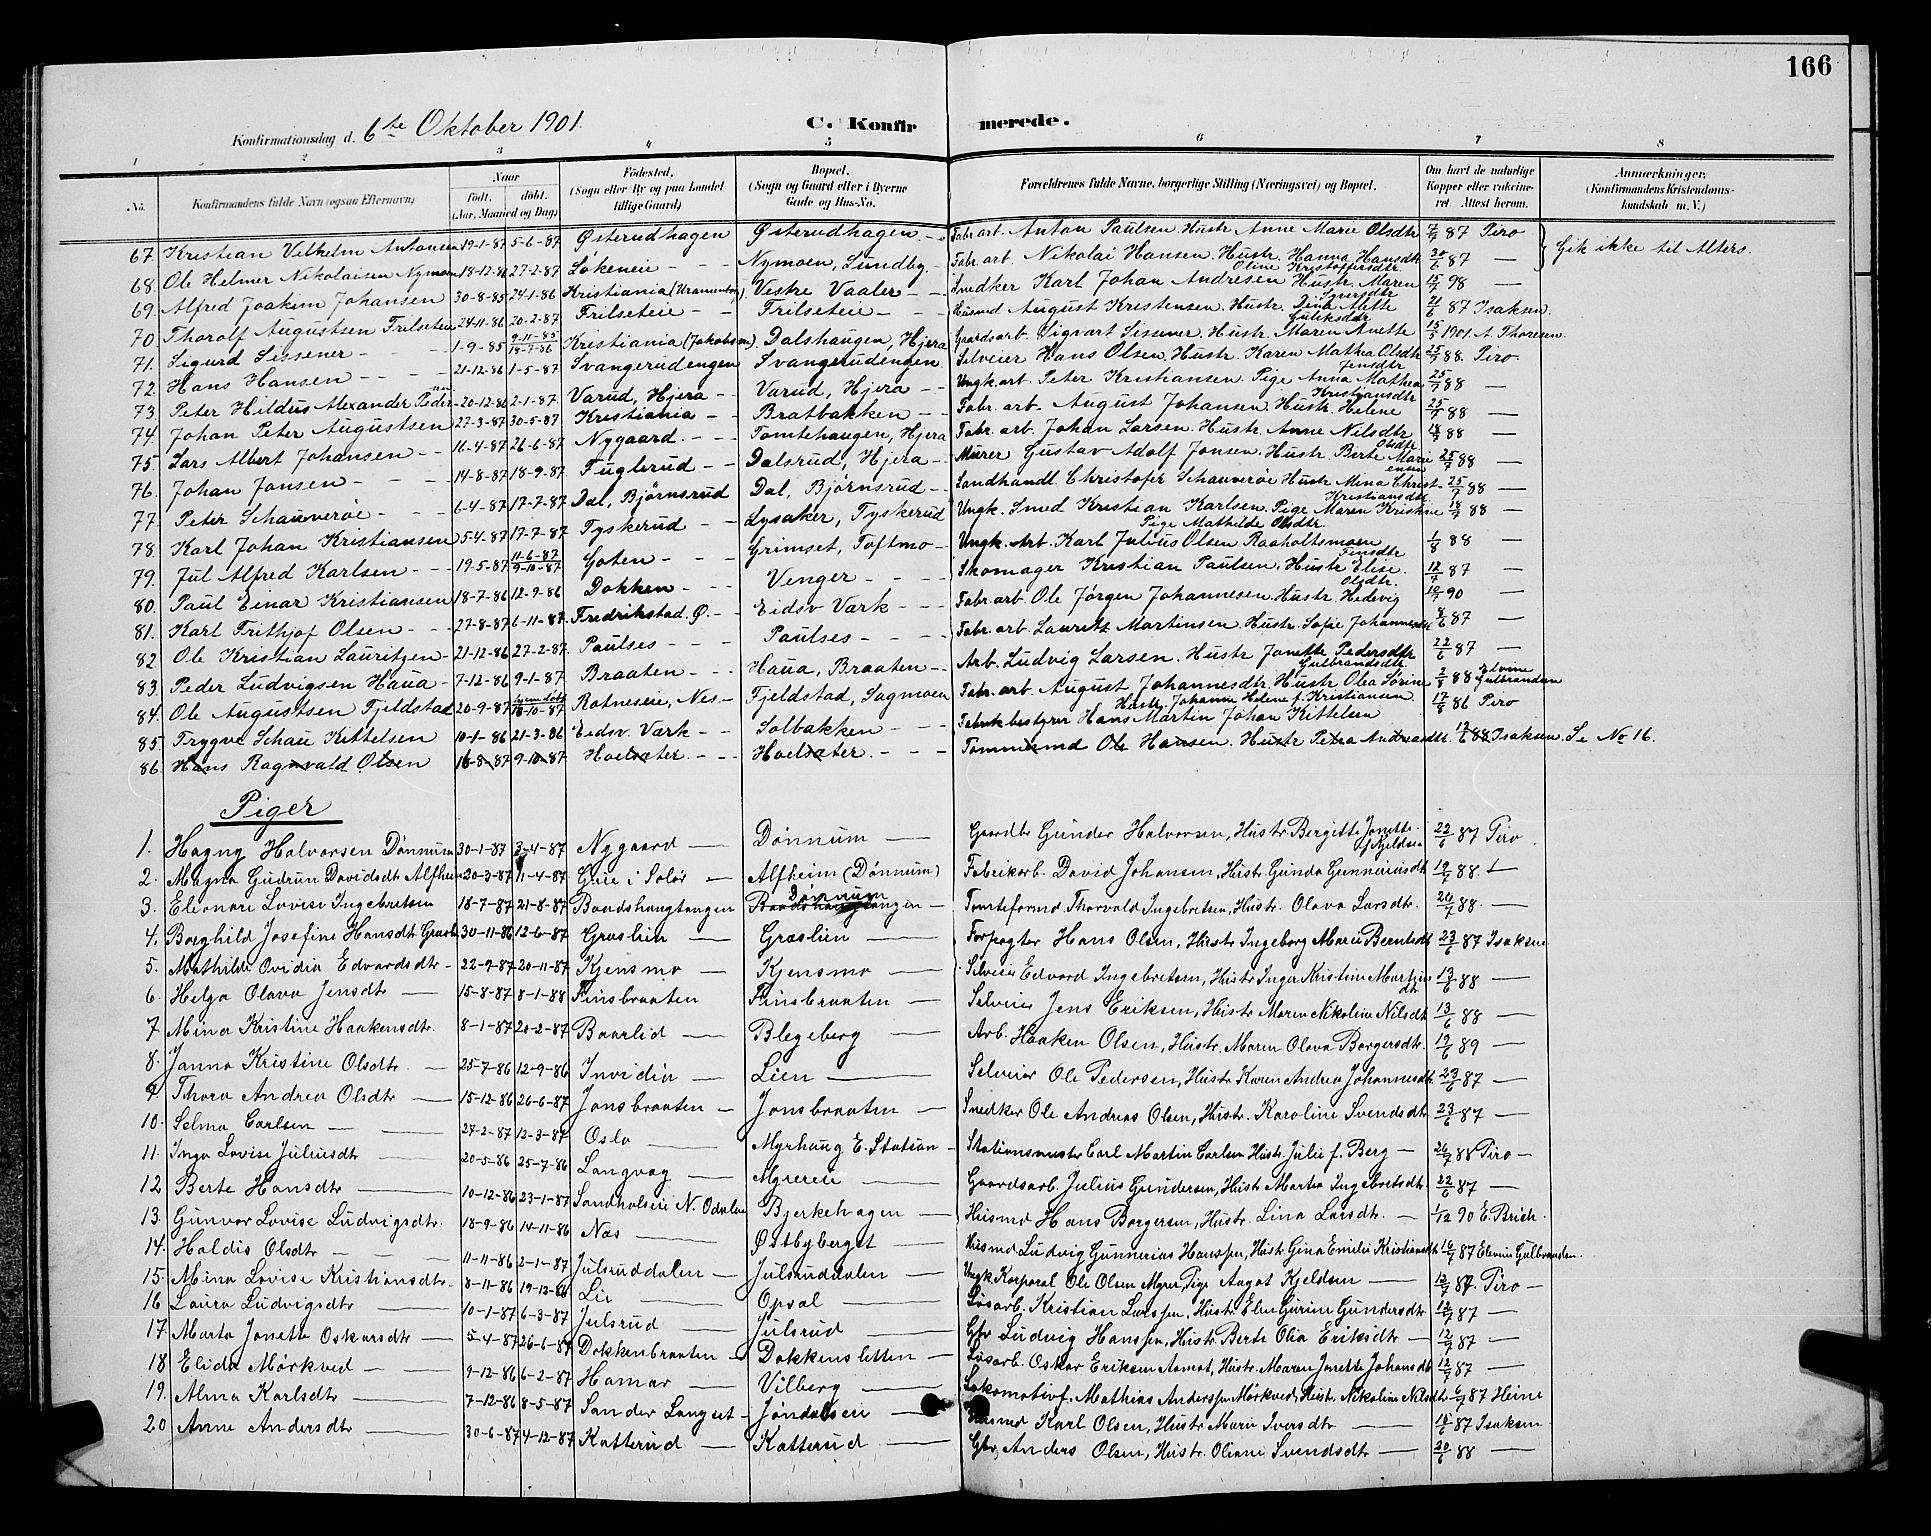 166
Konfirmationsdag d. 6te Oktober 1901. C. Konfirmerede.
1 2 3 4 5 6 7 8
No. Konfirmandens fulde Navn (ogsaa Efternavn) Naar født. døbt. (Aar, Maaned og Dag) Fødested. (Sogn eller By og paa Landet tillige Gaard) Bopæl. (Sogn og Gaard eller i Byerne Gade og Hus-No. Forældrenes fulde Navne, borgerlige Stilling (Næringsvei) og Bopæl. Om havt de naturlige Kopper eller vaccineret. Attest herom. Anmærkninger. (Konfirmandens Kristendomskundskab m. V.)
67 Kristian Vilhelm Antonsen 19-1-87 5-6-87 Østerudhagen Østerudhagen Fabr. art. Anton Paulsen. Hustr. Anne Marie Olsdtr 87 Piro } Gik ikke til Alters.
68 Ole Helmer Nikolaisen Nymoen 18-12-86 27-2-87 Løkeneie Nymoen, Sundby. Fabr. art. Nikolai Hansen. Hustr. Hanna Hansdtr 20/6 87 —
69 Alfred Joakim Johansen 30-8-85 24-1-86 Kristiania (Uranienborg) Vestre Vaaler Snedker Karl Johan Andresen Hustr. Oline Kristoffersdtr 98 —
70 Thorolf Augustsen Frilseteie 24-11-86 20-2-87 Frilseteie Frilseteie Husmd August Kristensen. Hustr. Maren 21/6 87 Isaksen
71. Sigurd Sissener 1-9-85 9-11-85 18-7-86 Kristiania (Jakobsm). Dalshaugen, Hjera Gaardsarb. Sigvart Sissener. Hustr. Maren Anette 1901. A Thoresen
72. Hans Hansen 21-12-86 1-5-87 Svangerudengen Svangerudengen Selveier Hans Olsen. Hustr. Karen Mathea Olsdtr 25/7 88. Piro
73. Peter Hildus Alexander Pedersen 20-12-86 2-1-87 Varud, Hjera Varud, Hjera Ungk. arb. Peter Kristiansen. Pige Anna Mathea Jensdtr 25/7 88 —
74. Johan Peter Augustsen 27-3-87 30-5-87 Kristiania Bratbakken Fabr. arb. August Johansen. Hustr. Helene Kristiansdtr 25/7 88 —
75. Lars Albert Johansen 16-4-87 26-6-87 Nygaard. Tomtehaugen, Hjera Fabr. arb. Johan Larsen. Hustr. Anne Nilsdtr 18/7 88 —
76. Johan Jonsen 14-8-87 18-9-87 Fuglerud Dalsrud, Hjera Murer Gustav Adolf Jonsen. Hustr. Berte Marie Olsdtr 25/7 88 —
77. Peter Schauverøe 6-4-87 17-7-87 Dal, Bjørnsrud Dal, Bjørnsrud Landhandl. Christofer Schauverøe Hustr Mina Christensen 25/7 88 —
78. Karl Johan Kristiansen 5-4-87 17-7-87 Tyskerud Lysaker, Tyskerud Ungk. Smed Kristian Karlsen. Pige Maren Kristine Kristiansdtr 18/7 88 —
79. Jul Alfred Karlsen 19-5-87 11-6-87 9-10-87 Goten Grimset, Toftmo Ungk. Arb. Karl Julius Olsen Raaholtsmoen Pige Mathilde Olsdtr. 1/8 88 —
80. Paul Einar Kristiansen 18-7-86 12-9-86 Dokken Venger Skomager Kristian Paulsen. Hustr Elise Finsdtr 12/7 87 —
81. Karl Frithjof Olsen 27-8-87 6-11-87 Fredrikstad. Ø. Eidsv Værk Fabr. arb. Ole Jørgen Johannesen. Hustr Hedevig Olsdtr. 90 —
82 Ole Kristian Lauritzen 21-12-86 27-2-87. Paulses Paulses Fabr. arb. Lauritz Martinsen. Hustr. Sofie Johannesdtr 87 —
83. Peder Ludvigsen Haua 7-12-86 9-1-87 Braaten Haua, Braaten Arb. Ludvig Larsen. Hustr Jonette Pedersdtr 22/6 87 —
84. Ole Augustsen Fjeldstad 20-9-87 16-10-87 Rotneseie, Nes Fjeldstad, Sagmoen Fabr. arb. August Johannesdtr. Hustr Olea Sørine Gulbrandsdtr. 2/8 88 Elvine Gulbrandsen
85. Trygve Schau Kittelsen 10-1-86 21-3-86 Eidsv. Værk Solbakken Fabrikbestyrer Hans Martin Johan Kittelsen Hustr. Johanne Helene f. Kristiansen 17/8 86 Piro
86. Hans Ragnvald Olsen 16-8-87 9-10-87 Hoelsæter. Hoelsæter. Tømmermd Ole Hansen. Hustr Petra Andreasdtr. 88 Isaksen. Se No 16.
Piger
1. Hagny Halvorsen Dønnum 30-1-87 3-4-87 Nygaard — Dønnum — Gaardbr Gunder Halvorsen, Hustr Bergitte Jonette f. Kjeldsen 22/6 87 Piro
2. Magna Gudrun Davidsdt Alfheim 20-3-87 11-4-87 Grue i Solør — Alfheim (Dønnum) Fabrikarb. David Johansen, Hustr Gunda Gunneriusdt 19/7 88 —
3. Eleonore Lovise Ingebretsen 18-7-87 21-8-87 Baadshaugtangen Dønnum Baadshaugtangen Tomteformd Thorvald Ingebretsen, Hustr. Olava Larsdtr. 26/7 88. —
4. Borghild Josefine Hansdt Græslien 30-11-86 12-6-87 Græslien — Græslien — Forpagter Hans Olsen, Hustr Ingeborg Marie Berntsdt 23/6 87 Isaksen
5. Mathilde Ovidia Edvardsdtr 22-9-87 20-11-87 Kjensmo — Kjensmo — Selveier Edvard Ingebretsen, Hustr Inger Kristine Martinsdtr 13/6 88 —
6. Helga Olava Jensdtr — 15-8-87 8-1-88 Finsbraaten Finsbraaten — Selveier Jens Eriksen, Hustr Maren Nikoline Nilsdt 13/6 88 —
7 Mina Kristine Haakensdtr. 8-1-87 20-2-87 Baarlid — Blegeberg — Arb. Haaken Olsen, Hustr. Maren Olava Borgersdtr. 19/6 89 —
8. Janna Kristine Olsdtr. — 25-7-86 12-9-86 Invidia — Lien — Selveier Ole Pedersen, Hustr Karen Andrea Johannesdt 23/6 87 —
9 Thora Andrea Olsdtr — 15-12-86 26-6-87 Jonsbraaten — Jonsbraaten — Snedker Ole Andreas Olsen, Hustr. Karoline Svendsdt 23/6 87 —
10. Selma Carlsen — 27-2-87 12-3-87 Oslo — Myrhaug E. Station — Stationsmester Carl Martin Carlsen Hustr. Julie f. Berg — 26/7 88 Piro —
11. Inga Lovise Juliusdtr — 20-5-86 25-7-86 Langvag — Myrereie — Gaardsarb. Julius Gundersen, Hustr Martea Ingebretsdtr 22/6 87 —
12 Berte Hansdtr — 10-12-86 23-1-87 Sandholseie N. Odalen Bjerkehagen — Husmd Hans Borgersen, Hustr. Lina Larsdtr. — 1/12 90 E. Brich.
13. Gunvor Lovise Ludvigsdtr. 18-9-86 14-11-86 Næs — Østbyberget — Husmd Ludvig Gunnerius Hanssen, Hustr. Gina Emilie Kristiansdtr 16/7 87 Elevine Gulbrandsen
14. Haldis Olsdtr — 11-11-86 2-1-87 Julsruddalen — Julsruddalen — Ungk. Korporal Ole Olsen Myrer, Pige Aagot Kjeldsen — 12/7 87. Piro —
15. Mina Lovise Kristiansdtr. 8-11-86 19-12-86 Lie — Opsal — Løsarb. Kristian Larssen, Hustr Elen Gurine Gundersdtr 12/7 87 —
16 Laura Ludvigsdtr — 10-1-87 6-3-87 Julsrud — Julsrud — Gbr Ludvig Hanssen, Hustr Berte Olia Eriksdtr — 12/7 87 —
17. Marta Jonette Oskarsdtr — 5-4-87 26-6-87 Dokkenbraaten — Dokkensletten — Løsarb. Oskar Eriksen Aamot, Hustr. Maren Jonette Johansdt 12/7 87 —
18 Elida Mørkved — 9-12-86 6-2-87 Hamar — Vilberg — Lokomotivf. Mathias Anderssen Mørkved, Hustr. Nikoline Nilsdtr 6/7 87 Heine
19. Alma Karlsdtr — 7-12-86 8-5-87 Sander Langset — Jøndalseie — Husmd Karl Olsen, Hustr Marie Iversdtr — 87 Isaksen
20 Anne Andersdtr — 30-6-87 4-12-87 Katterud — Katterud — Gbr, Anders Olsen, Hustr. Oliane Svendsdtr — 20/6 88 —